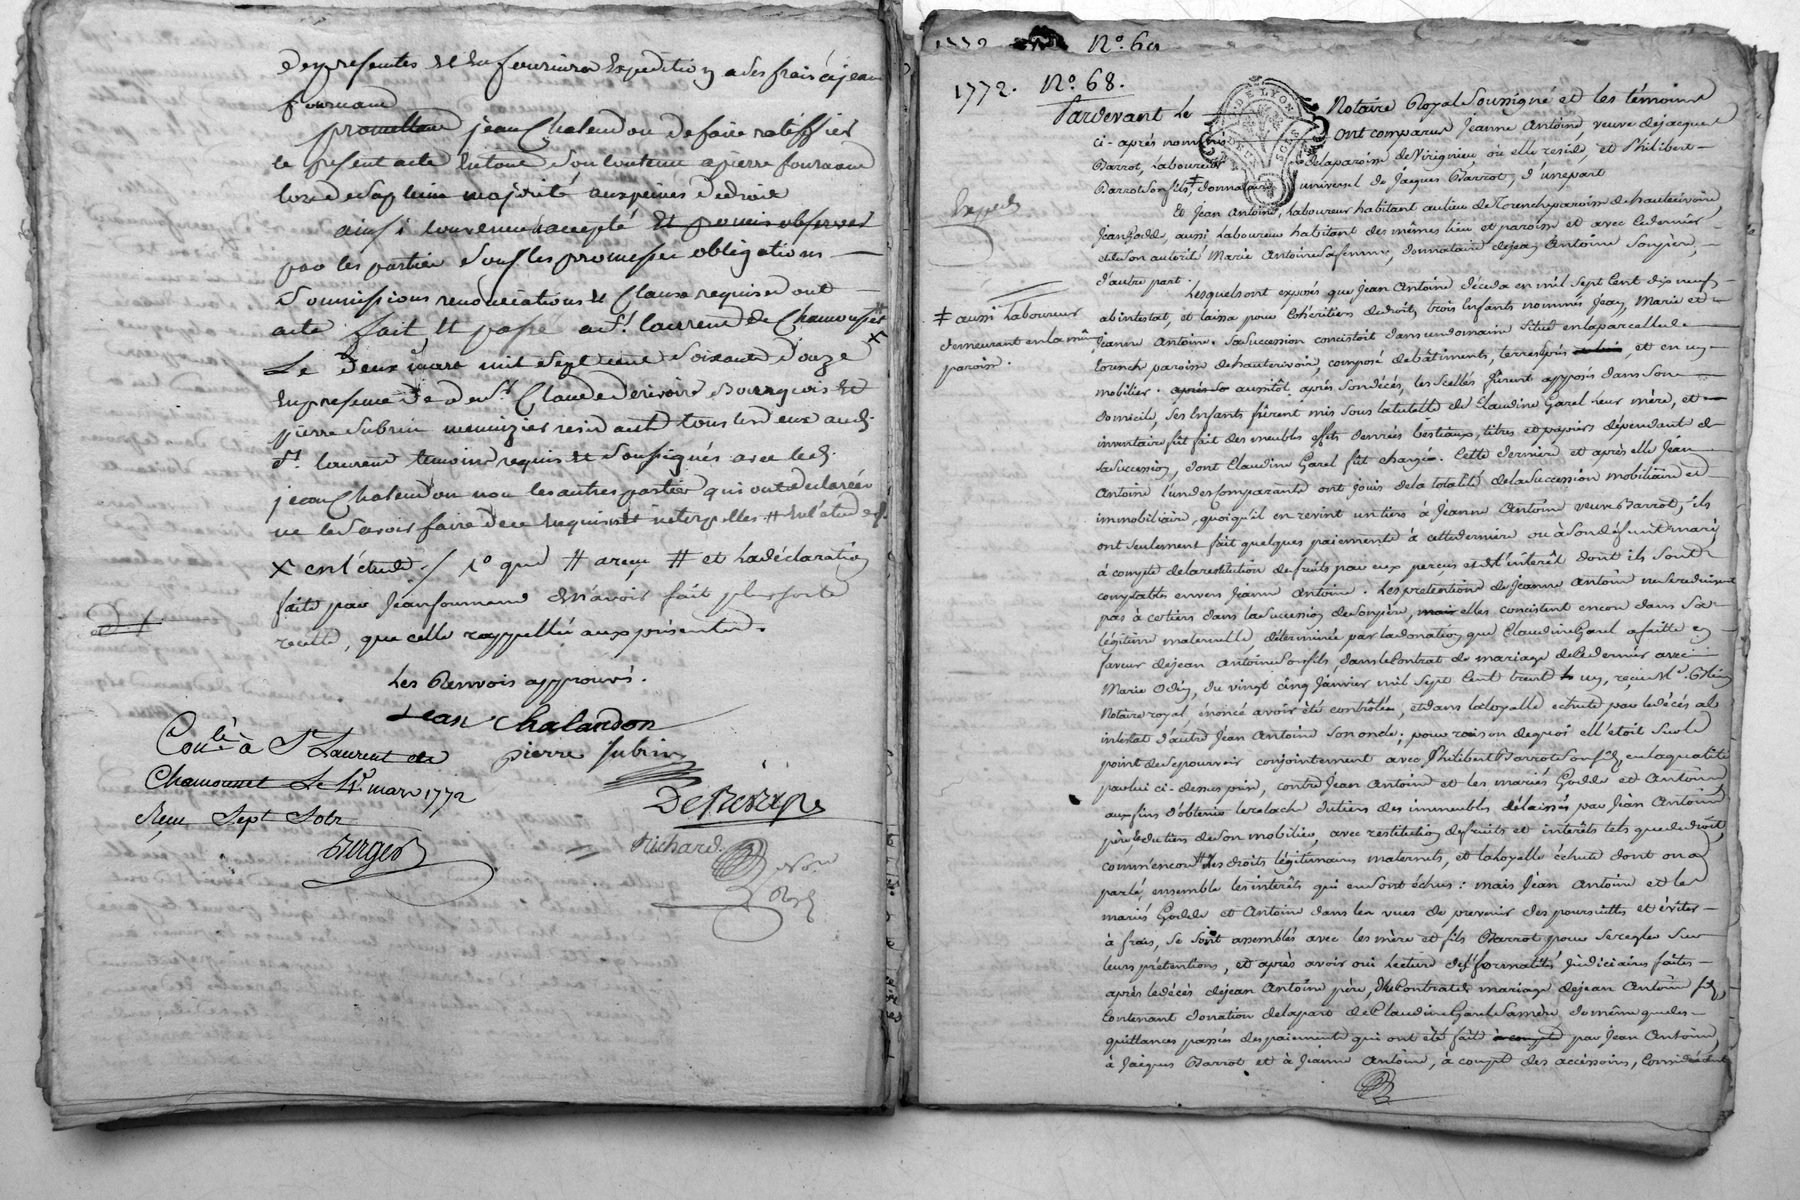 des presentes et en fournira Expedition a ses frais a jean
fournand
promettant jean Chalandon de faire ratiffier
le present acte en tout son contenu a pierre fournand
lors de sa pleine majorité aux peines de droit
ainsi convenu accepté et promis observer
par les parties sous les promesses obligations
soumissions renonciations et Clauses requises dont
acte fait et passé a St. laurent de Chamousset
Le deux mars mil sept cent soixante douze
en presence de Sr. Claude derivoire Bourgeois et
pierre subrin menuizier residants tous les deux aud.
St. laurent temoins requis et soussignés avec led.
jean Chalendon non les autres parties qui ont declaré
ne le savoir faire de ce enquis et interpellés # en l'étude
X en l'étude / 1o que # areçu # et la déclaration
faite par jean fournand de n'avoir fait plus forte
recette, que celle rappellée aux présentes.
Les Renvois approuvés.
Jean Chalandon
pierre subrin
Conlé à St Laurent de
Chamousset Le 14. mars 1772
Reçu Sept Sols
Derivoire
Richard
Nre.
Royl
Berger
1772 No. 69
1772. No. 68.
DE LYON
DEUX SOLS
Pardevant Le Notaire Royal Soussigné et les témoins
ci-après nommés ont comparus Jeanne Antoine, veuve de jacques
Barrot, Laboureur de la paroisse de Virignieu où elle reside, et Philibert
Barrot son fils, ‡ donnataire universel de Jacques Barrot, d'une part
Exped.
Et Jean Antoine, Laboureur habitant au lieu de Torench paroisse de hauterivoire,
Jean Godde, aussi Laboureur habitant des mêmes lieu et paroisse et avec le dernier
et de son autorité Marie Antoine sa femme, donnataire de jean Antoine son père,
d'autre part.
Lesquels ont exposés que Jean Antoine décéda en mil sept Cent dix neuf
‡ aussi Laboureur
demeurant en la même
paroisse.
abintestat, et laissa pour Cohéritiers de droit, trois Enfants nommés Jean, Marie et
Jeanne Antoine. Sa Succession consistoit dans un domaine Situé en la parcelle de
torench paroisse de hauterivoire, composé de bâtiments, terres, prés, et en un
mobilier. après sa aussitôt après son décés, les Scellés furent apposés dans son
domicile, ses Enfants furent mis sous la tutelle de Claudine Garel Leur mère, et
inventaire fût fait des meubles effets denrées bestiaux, titres et papiers dépendant de
sa Succession, dont Claudine Garel fût chargée. Cette dernière et après elle Jean
Antoine l'un des Comparants ont jouis de la totalité de la Succession mobiliaire et
immobiliaire, quoiqu'il en revint un tiers à Jeanne Antoine veuve Barrot, ils
ont seulement fait quelques paiements à cette dernière ou à son défunt mari
à compte de la restitution de fruits par eux perçus et de l'intérêt dont ils sont
comptables envers Jeanne Antoine. Les pretentions de Jeanne Antoine ne se reduisent
pas à ce tiers dans la Succession de son père, mais elles consistent encore dans sa
légitime maternelle, déterminée par la donation que Claudine Garel a faitte en
faveur de jean Antoine son fils, dans le Contrat de mariage de ce dernier avec
Marie Odin, du vingt cinq Janvier mil sept Cent trent un, reçu Me.
Notaire royal énoncé avoir été contrôlée, et dans la loyalle échute par le décés ab
intestat d'autre Jean Antoine son oncle; pour raison de quoi ell'étoit sur le
point de se pourvoir conjointement avec Philibert Barrot son fils, en la qualité
par lui ci-dessus prise, contre Jean Antoine et les mariés Godde et Antoine
aux fins d'obtenir le relach du tiers des immeubles délaissés par Jean Antoine
père et du tiers de son mobilier, avec restitution de fruits et intérêts tels que de droit,
comm'encor des droits légitimaires maternels, et la loyelle échute dont on a
parlé, ensemble les intérêts qui en sont échus: mais Jean Antoine et les
mariés Godde et Antoine dans les vues de prevenir des poursuittes et éviter
à frais, se sont assemblés avec les mère et fils Barrot pour se regler sur
leurs prétentions, et après avoir oui lecture des formalités judiciaires faites
après le décés de jean Antoine père, du Contrat de mariage de jean Antoine fils
Contenant donation de la part de Claudine Garel sa mère, de même que des
quittances passés des paiements qui ont été fait à compte par Jean Antoine,
à Jacques Barrot et à Jeanne Antoine, à compte des accessoires, Considérant